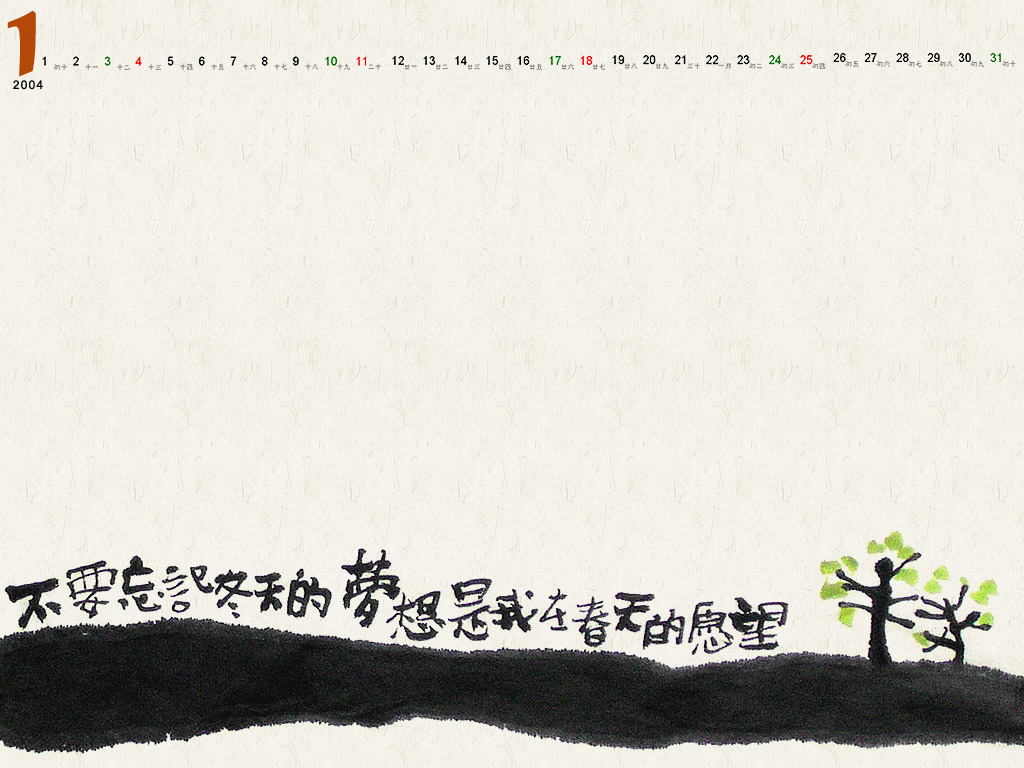 1
2004
1 初十 2 十一 3 十二 4 十三 5 十四 6 十五 7 十六 8 十七 9 十八 10 十九 11 二十 12 廿一 13 廿二 14 廿三 15 廿四 16 廿五 17 廿六 18 廿七 19 廿八 20 廿九 21 三十 22 一月 23 初二 24 初三 25 初四 26 初五 27 初六 28 初七 29 初八 30 初九 31 初十
不要忘記冬天的夢想是我在春天的愿望